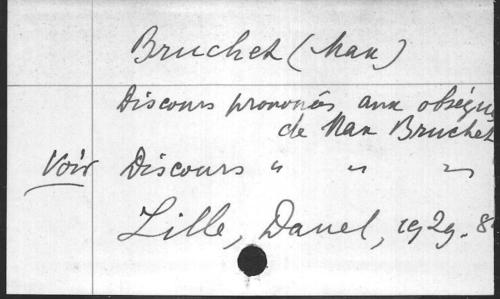 Bruchet (Max)
Discours prononcés aux obsèqu
de Max Bruchet
Voir Discours " " "
Lille, Danel, 1929. 8